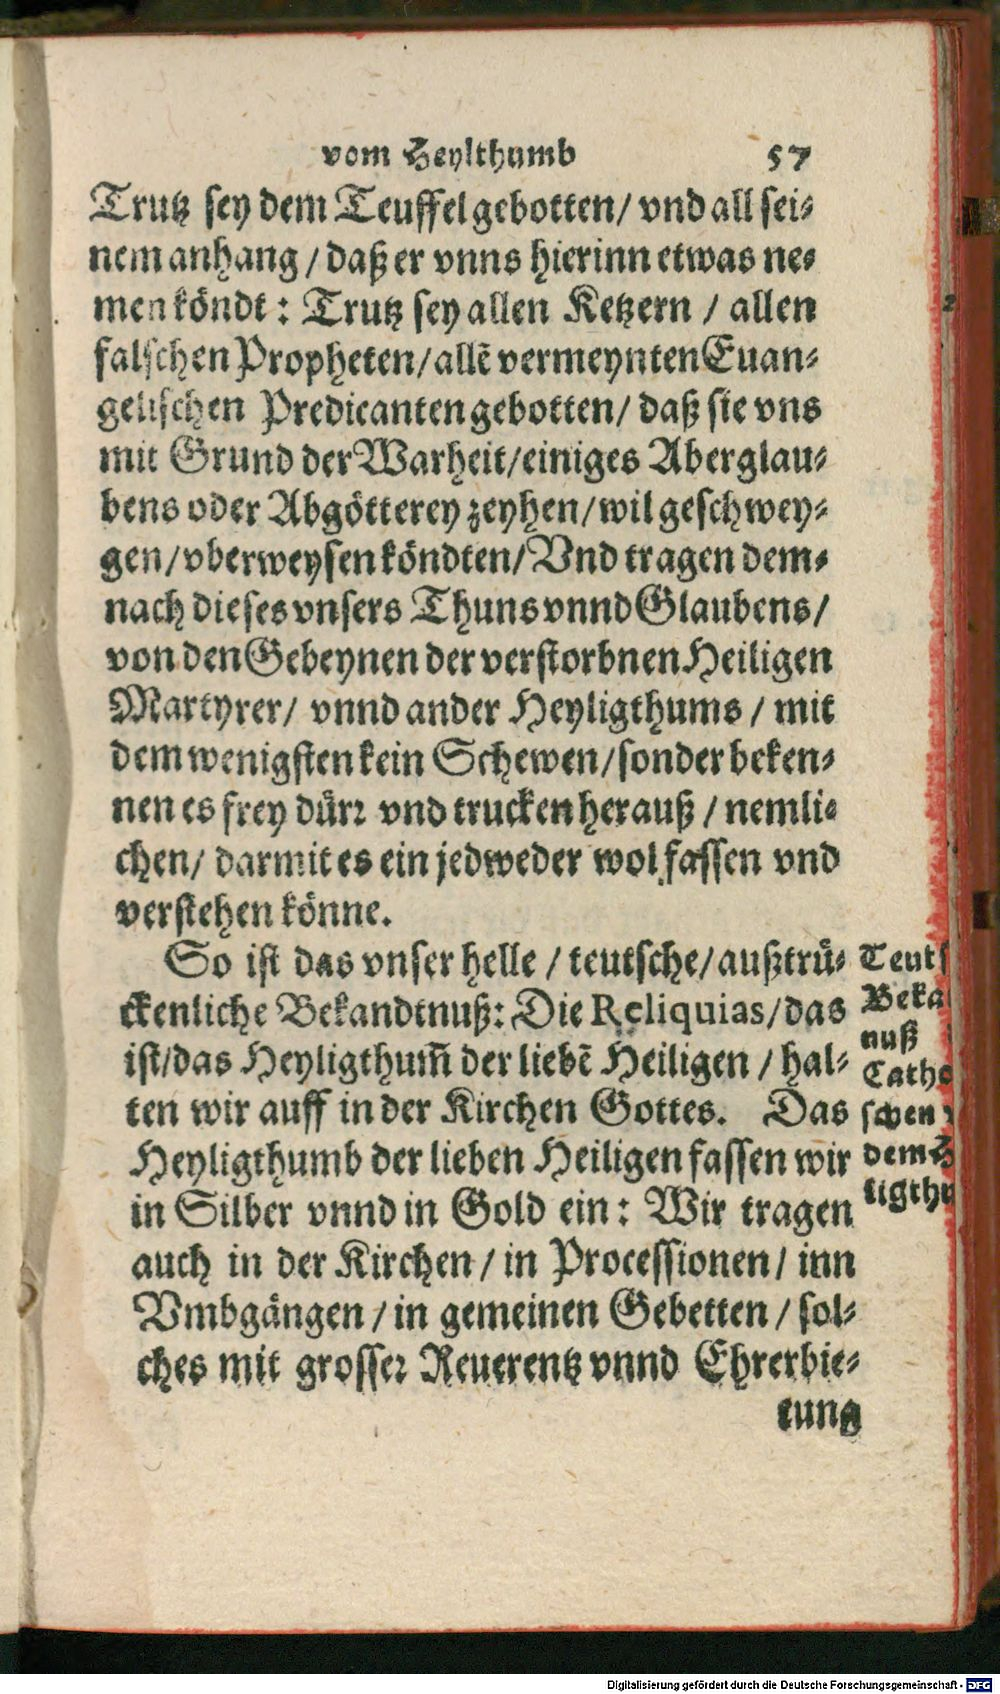 vom Heylthumb 57
Trutz sey dem Teuffel gebotten/ vnd all sei⸗
nem anhang / daß er vnns hierinn etwas ne⸗
men köndt : Trutz sey allen Ketzern / allen
falschen Propheten/ allẽ vermeynten Euan⸗
gelischen Predicanten gebotten/ daß sie vns
mit Grund der Warheit/einiges Aberglau⸗
bens oder Abgötterey zeyhen/ wil geschwey⸗
gen/ vberweysen köndten/ Vnd tragen dem⸗
nach dieses vnsers Thuns vnnd Glaubens/
von den Gebeynen der verstorbnen Heiligen
Martyrer/ vnnd ander Heyligthums / mit
dem wenigsten kein Schewen/ sonder beken⸗
nen es frey dürꝛ vnd trucken herauß / nemli⸗
chen/ darmit es ein jedweder wol fassen vnd
verstehen könne.
So ist das vnser helle / teutsche/ außtrü⸗
ckenliche Bekandtnuß: Die Reliquias/ das
ist/das Heyligthum̃ der liebẽ Heiligen / hal⸗
ten wir auff in der Kirchen Gottes. Das
Heyligthumb der lieben Heiligen fassen wir
in Silber vnnd in Gold ein : Wir tragen
auch in der Kirchen / in Processionen/ inn
Vmbgängen / in gemeinen Gebetten / sol⸗
ches mit grosser Reuerentz vnnd Ehrerbie⸗
tung
Teuts
Beka
nuß
Catho
schen
dem H
ligthu
Digitalisierung gefördert durch die Deutsche Forschungsgemeinschaft - DFG